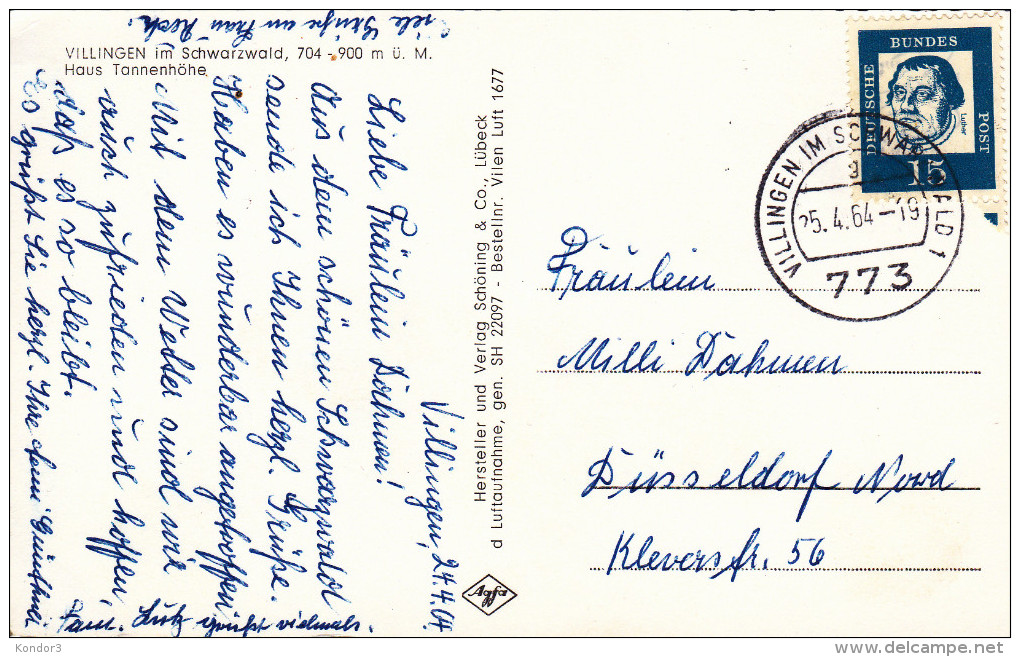 VILLINGEN im Schwarzwald, 704-900 m ü. M.
Haus Tannenhöhe
Villingen, 24.4.64.
Liebe Fräulein Dahmen!
Aus dem schönen Schwarzwald
sende ich Ihnen herzl. Grüße.
Haben es wunderbar angetroffen
Mit dem Wetter sind wir
auch zufrieden und hoffen
daß es so bleibt.
Es grüßt Sie herzl. Ihre
Lutz grüßt vielmals.
viele Grüße an Frau
Hersteller und Verlag Schöning & Co., Lübeck
d Luftaufnahme, gen. SH 22097 - Bestellnr. Vilen Luft 1677
Agfa
DEUTSCHE
BUNDES
POST
Luther
15
VILLINGEN IM SCHWARZWALD 1
25.4.64-19
773
Fräulein
Milli Dahmen
Düsseldorf Nord
Kleverstr. 56
Kondor3
delcampe.net